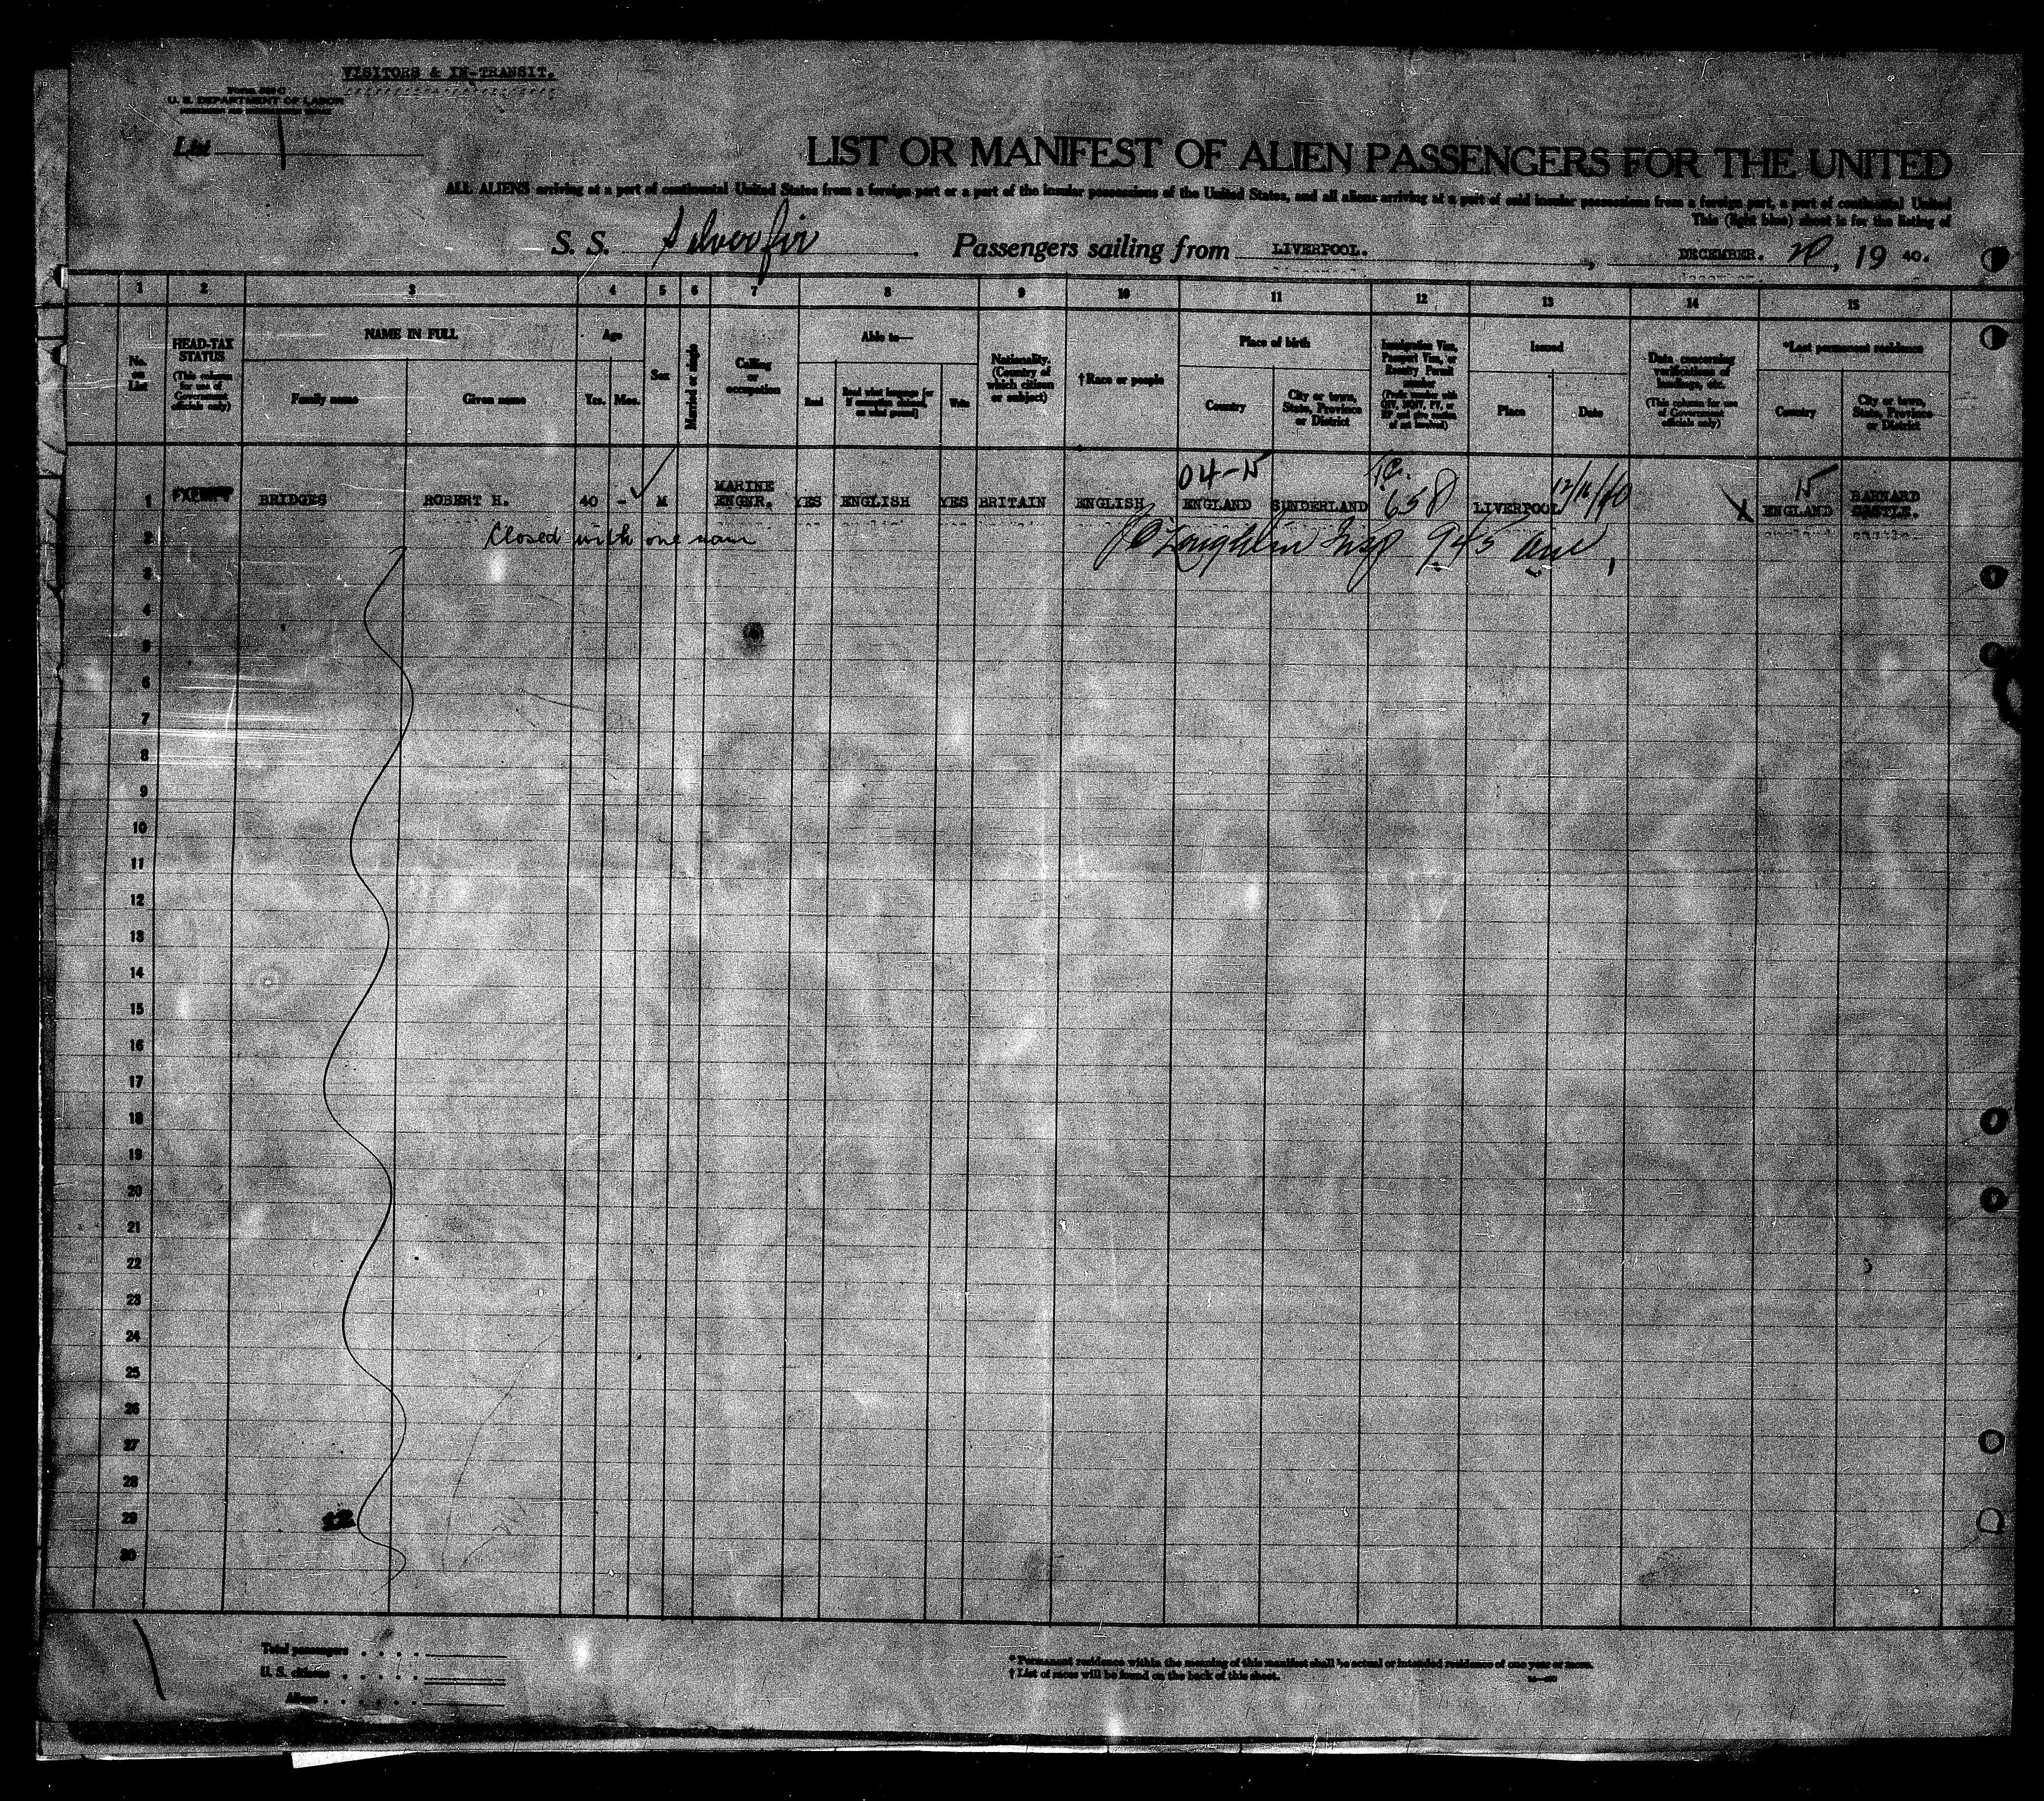 VISITORS & IN-TRANSIT.
U. S. DEPARTMENT OF LABOR
List 1
LIST OR MANIFEST OF ALIEN PASSENGERS FOR THE UNITED
ALL ALIENS arriving at a port of continental United States from a foreign port or a port of the insular possessions of the United States, and all aliens arriving at a port of said insular possessions from a foreign port, a port of continental United
This (light blue) sheet is for the listing of
S. S. Silverfir . Passengers sailing from LIVERPOOL. , DECEMBER. 20, 19 40.
1 2 3 4 5 6 7 8 9 10 11 12 13 14 15
No. on List
HEAD-TAX STATUS (This column for use of Government officials only)
NAME IN FULL
Family name
Given name
Age
Yrs. Mos.
Sex
Married or single
Calling or occupation
Able to—
Read
Read what language [or if exemption claimed, on what ground]
Write
Nationality. (Country of which citizen or subject)
†Race or people
Place of birth
Country
City or town, State, Province or District
Immigration Visa, Passport Visa, or Reentry Permit number
Issued
Place
Date
Data concerning verifications of landings, etc. (This column for use of Government officials only)
*Last permanent residence
Country
City or town, State, Province or District
1 EXEMPT BRIDGES ROBERT H. 40 - M MARINE ENGNR. YES ENGLISH YES BRITAIN ENGLISH 04-N ENGLAND SUNDERLAND 658 LIVERPOOL 12/16/40 X ENGLAND BARNARD CASTLE.
2 Closed with one name
3
4
5
6
7
8
9
10
11
12
13
14
15
16
17
18
19
20
21
22
23
24
25
26
27
28
29
30
Total passengers . . . .
U. S. citizens . . . . .
Aliens . . . . . .
*Permanent residence within the meaning of this manifest shall be actual or intended residence of one year or more.
†List of races will be found on the back of this sheet.